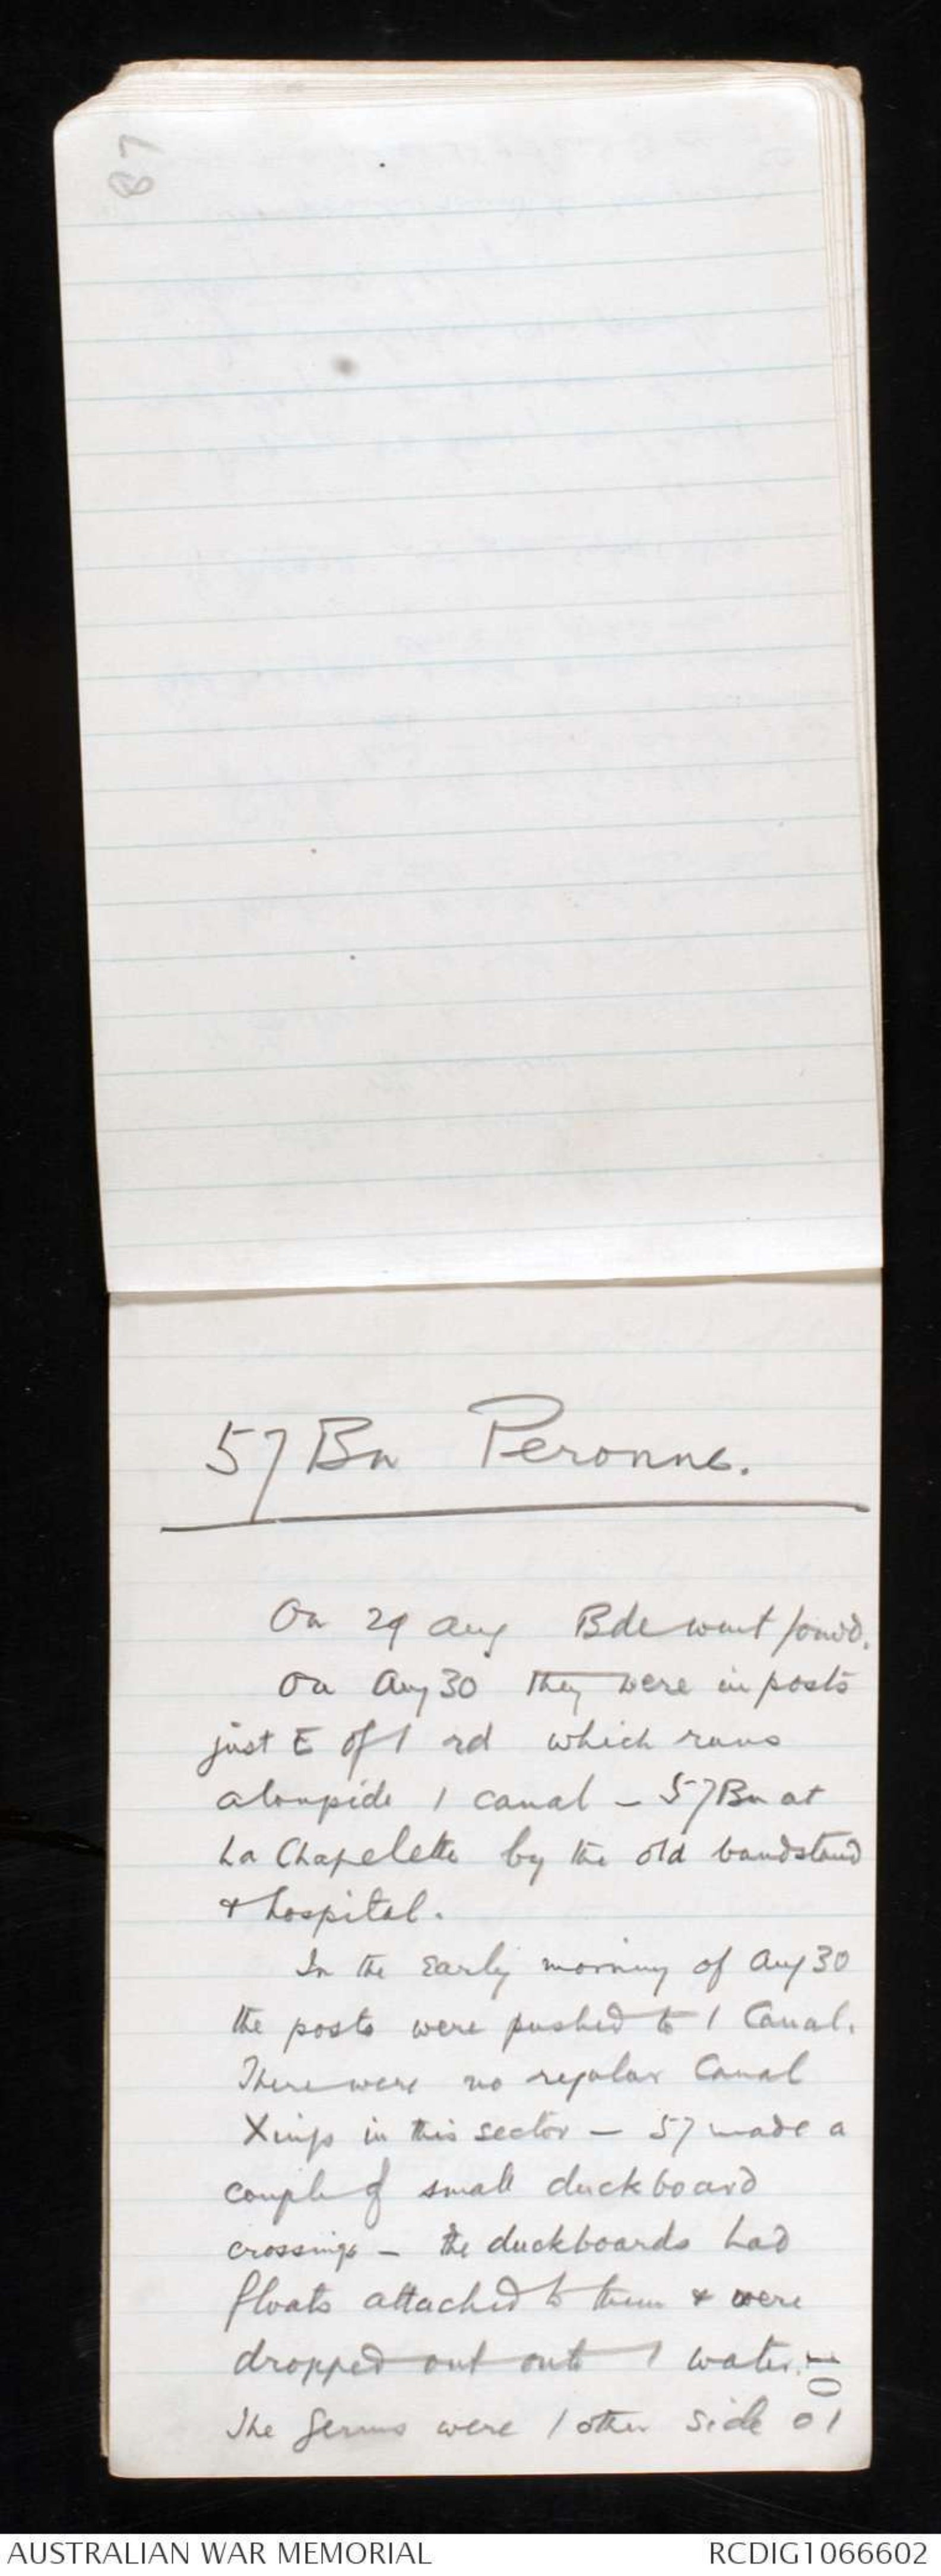 87
57 Bn Peronne.
On 29 Aug Bde went forwd.
On Aug 30 they were in posts
just E of / rd which runs
alongside / canal - 57 Bn at
La Chapelette by the old bandstand
& hospital.
In the early morning of Aug 30
the posts were pushed to / Canal.
There were no regular Canal
Xings in this sector - 57 made a
couple of small duckboard
crossings - the duckboards had
floats attached to them & were
dropped out onto / water.
The Germs were / other side o /
10
AUSTRALIAN WAR MEMORIAL
RCDIG1066602